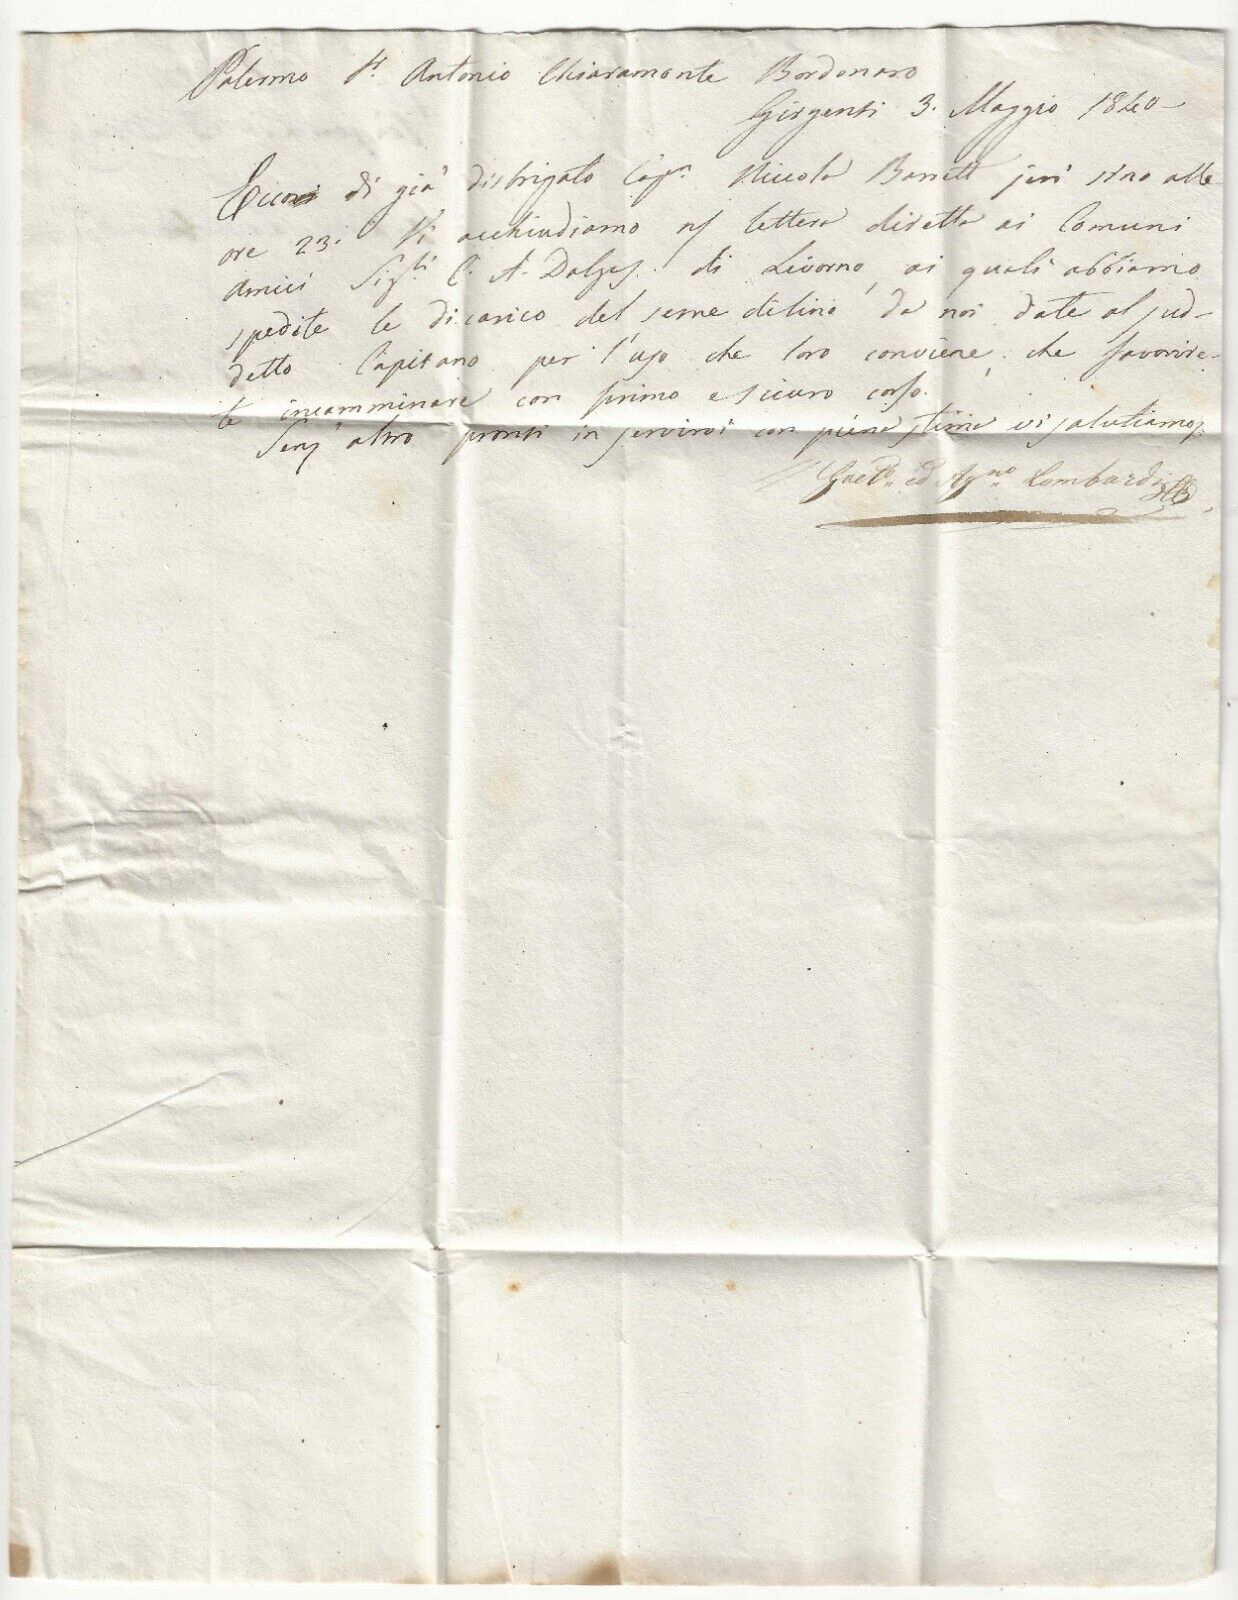 Palermo Sr. Antonio Chiaramonte Bordonaro
Girgenti 3. Maggio 1840
di già disbrigato Capn. Niccola Barrett jeri sino alle
ore 23. Vi acchiudiamo ns/ lettera diretta ai Comuni
amici Sigri. C. A. Dalgas. di Livorno, ai quali abbiamo
spedite le di carico del seme di lino da noi date al sud-
detto Capitano per l'uso che loro conviene, che favorire-
te incamminare con primo e sicuro corso.
Senz'altro pronti in servirvi con piena stima vi salutiamo
Gaeto. ed Agno. Lombardi